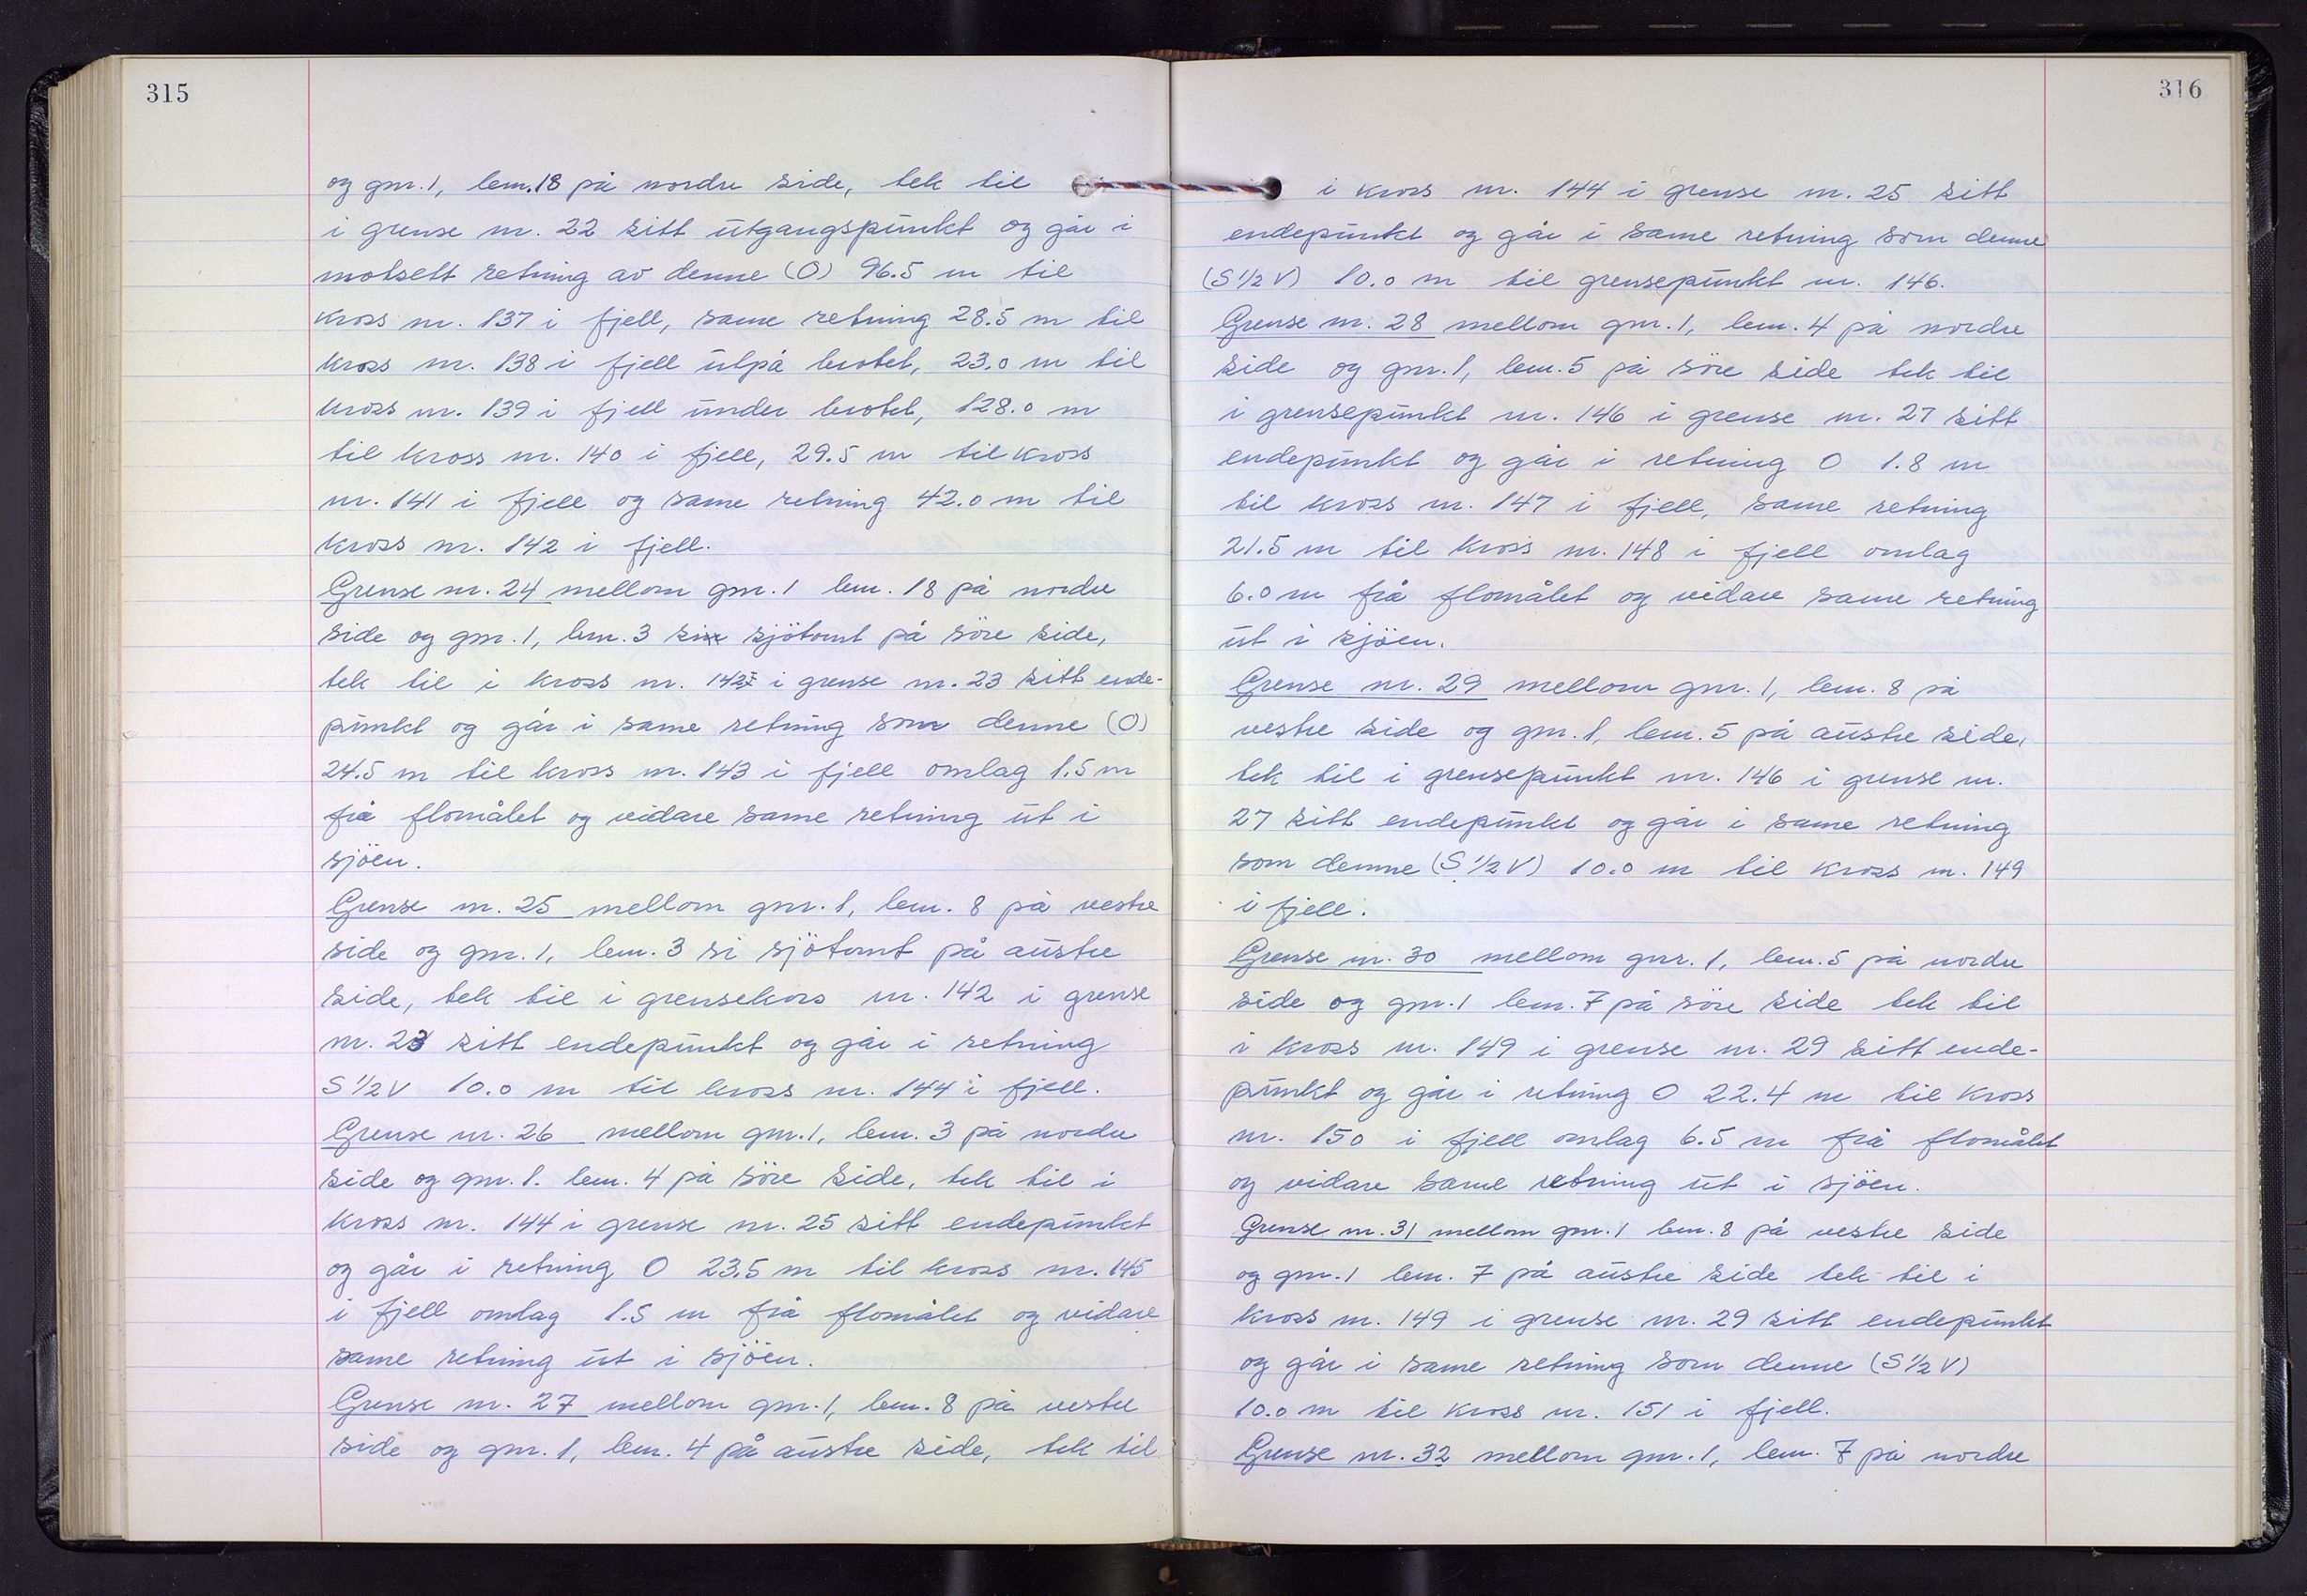 315
og gnr. 1, lem. 18 på nordre side, tek til
i grense nr. 22 sitt utgangspunkt og går i
motsett retning av denne (O) 96.5 m til
kross nr. 137 i fjell, same retning 28.5 m til
kross nr. 138 i fjell utpå brotet, 23.0 m til
kross nr. 139 i fjell under brotet, 128.0 m
til kross nr. 140 i fjell, 29.5 m til kross
nr. 141 i fjell og same retning 42.0 m til
kross nr. 142 i fjell.
Grense nr. 24 mellom gnr. 1 lem. 18 på nordre
side og gnr. 1, lem. 3 sjötomt på söre side,
tek til i kross nr. 142 i grense nr. 23 sitt ende-
punkt og går i same retning som denne (O)
24.5 m til kross nr. 143 i fjell omlag 1.5 m
frå flomålet og vidare same retning ut i
sjöen.
Grense nr. 25 mellom gnr. 1, lem. 8 på vestre
side og gnr. 1, lem. 3 si sjötomt på austre
side, tek til i grensekors nr. 142 i grense
nr. 23 sitt endepunkt og går i retning
S 1/2 V 10.0 m til kross nr. 144 i fjell.
Grense nr. 26 mellom gnr. 1, lem. 3 på nordre
side og gnr. 1. lem. 4 på söre side, tek til i
kross nr. 144 i grense nr. 25 sitt endepunkt
og går i retning O 23.5 m til kross nr. 145
i fjell omlag 1.5 m frå flomålet og vidare
same retning ut i sjöen.
Grense nr. 27 mellom gnr. 1, lem. 8 på vestre
side og gnr. 1, lem. 4 på austre side, tek til
316
i kross nr. 144 i grense nr. 25 sitt
endepunkt og går i same retning som denne
(S 1/2 V) 10.0 m til grensepunkt nr. 146.
Grense nr. 28 mellom gnr. 1, lem. 4 på nordre
side og gnr. 1, lem. 5 på söre side tek til
i grensepunkt nr. 146 i grense nr. 27 sitt
endepunkt og går i retning O 1.8 m
til kross nr. 147 i fjell, same retning
21.5 m til kross nr. 148 i fjell omlag
6.0 m frå flomålet og vidare same retning
ut i sjöen.
Grense nr. 29 mellom gnr. 1, lem. 8 på
vestre side og gnr. 1, lem. 5 på austre side,
tek til i grensepunkt nr. 146 i grense nr.
27 sitt endepunkt og går i same retning
som denne (S 1/2 V) 10.0 m til kross nr. 149
i fjell.
Grense nr. 30 mellom gnr. 1, lem. 5 på nordre
side og gnr. 1 lem. 7 på söre side tek til
i kross nr. 149 i grense nr. 29 sitt ende-
punkt og går i retning O 22.4 m til kross
nr. 150 i fjell omlag 6.5 m frå flomålet
og vidare same retning ut i sjöen.
Grense nr. 31 mellom gnr. 1 lem. 8 på vestre side
og gnr. 1 lem. 7 på austre side tek til i
kross nr. 149 i grense nr. 29 sitt endepunkt
og går i same retning som denne (S 1/2 V)
10.0 m til kross nr. 151 i fjell.
Grense nr. 32 mellom gnr. 1, lem. 7 på nordre